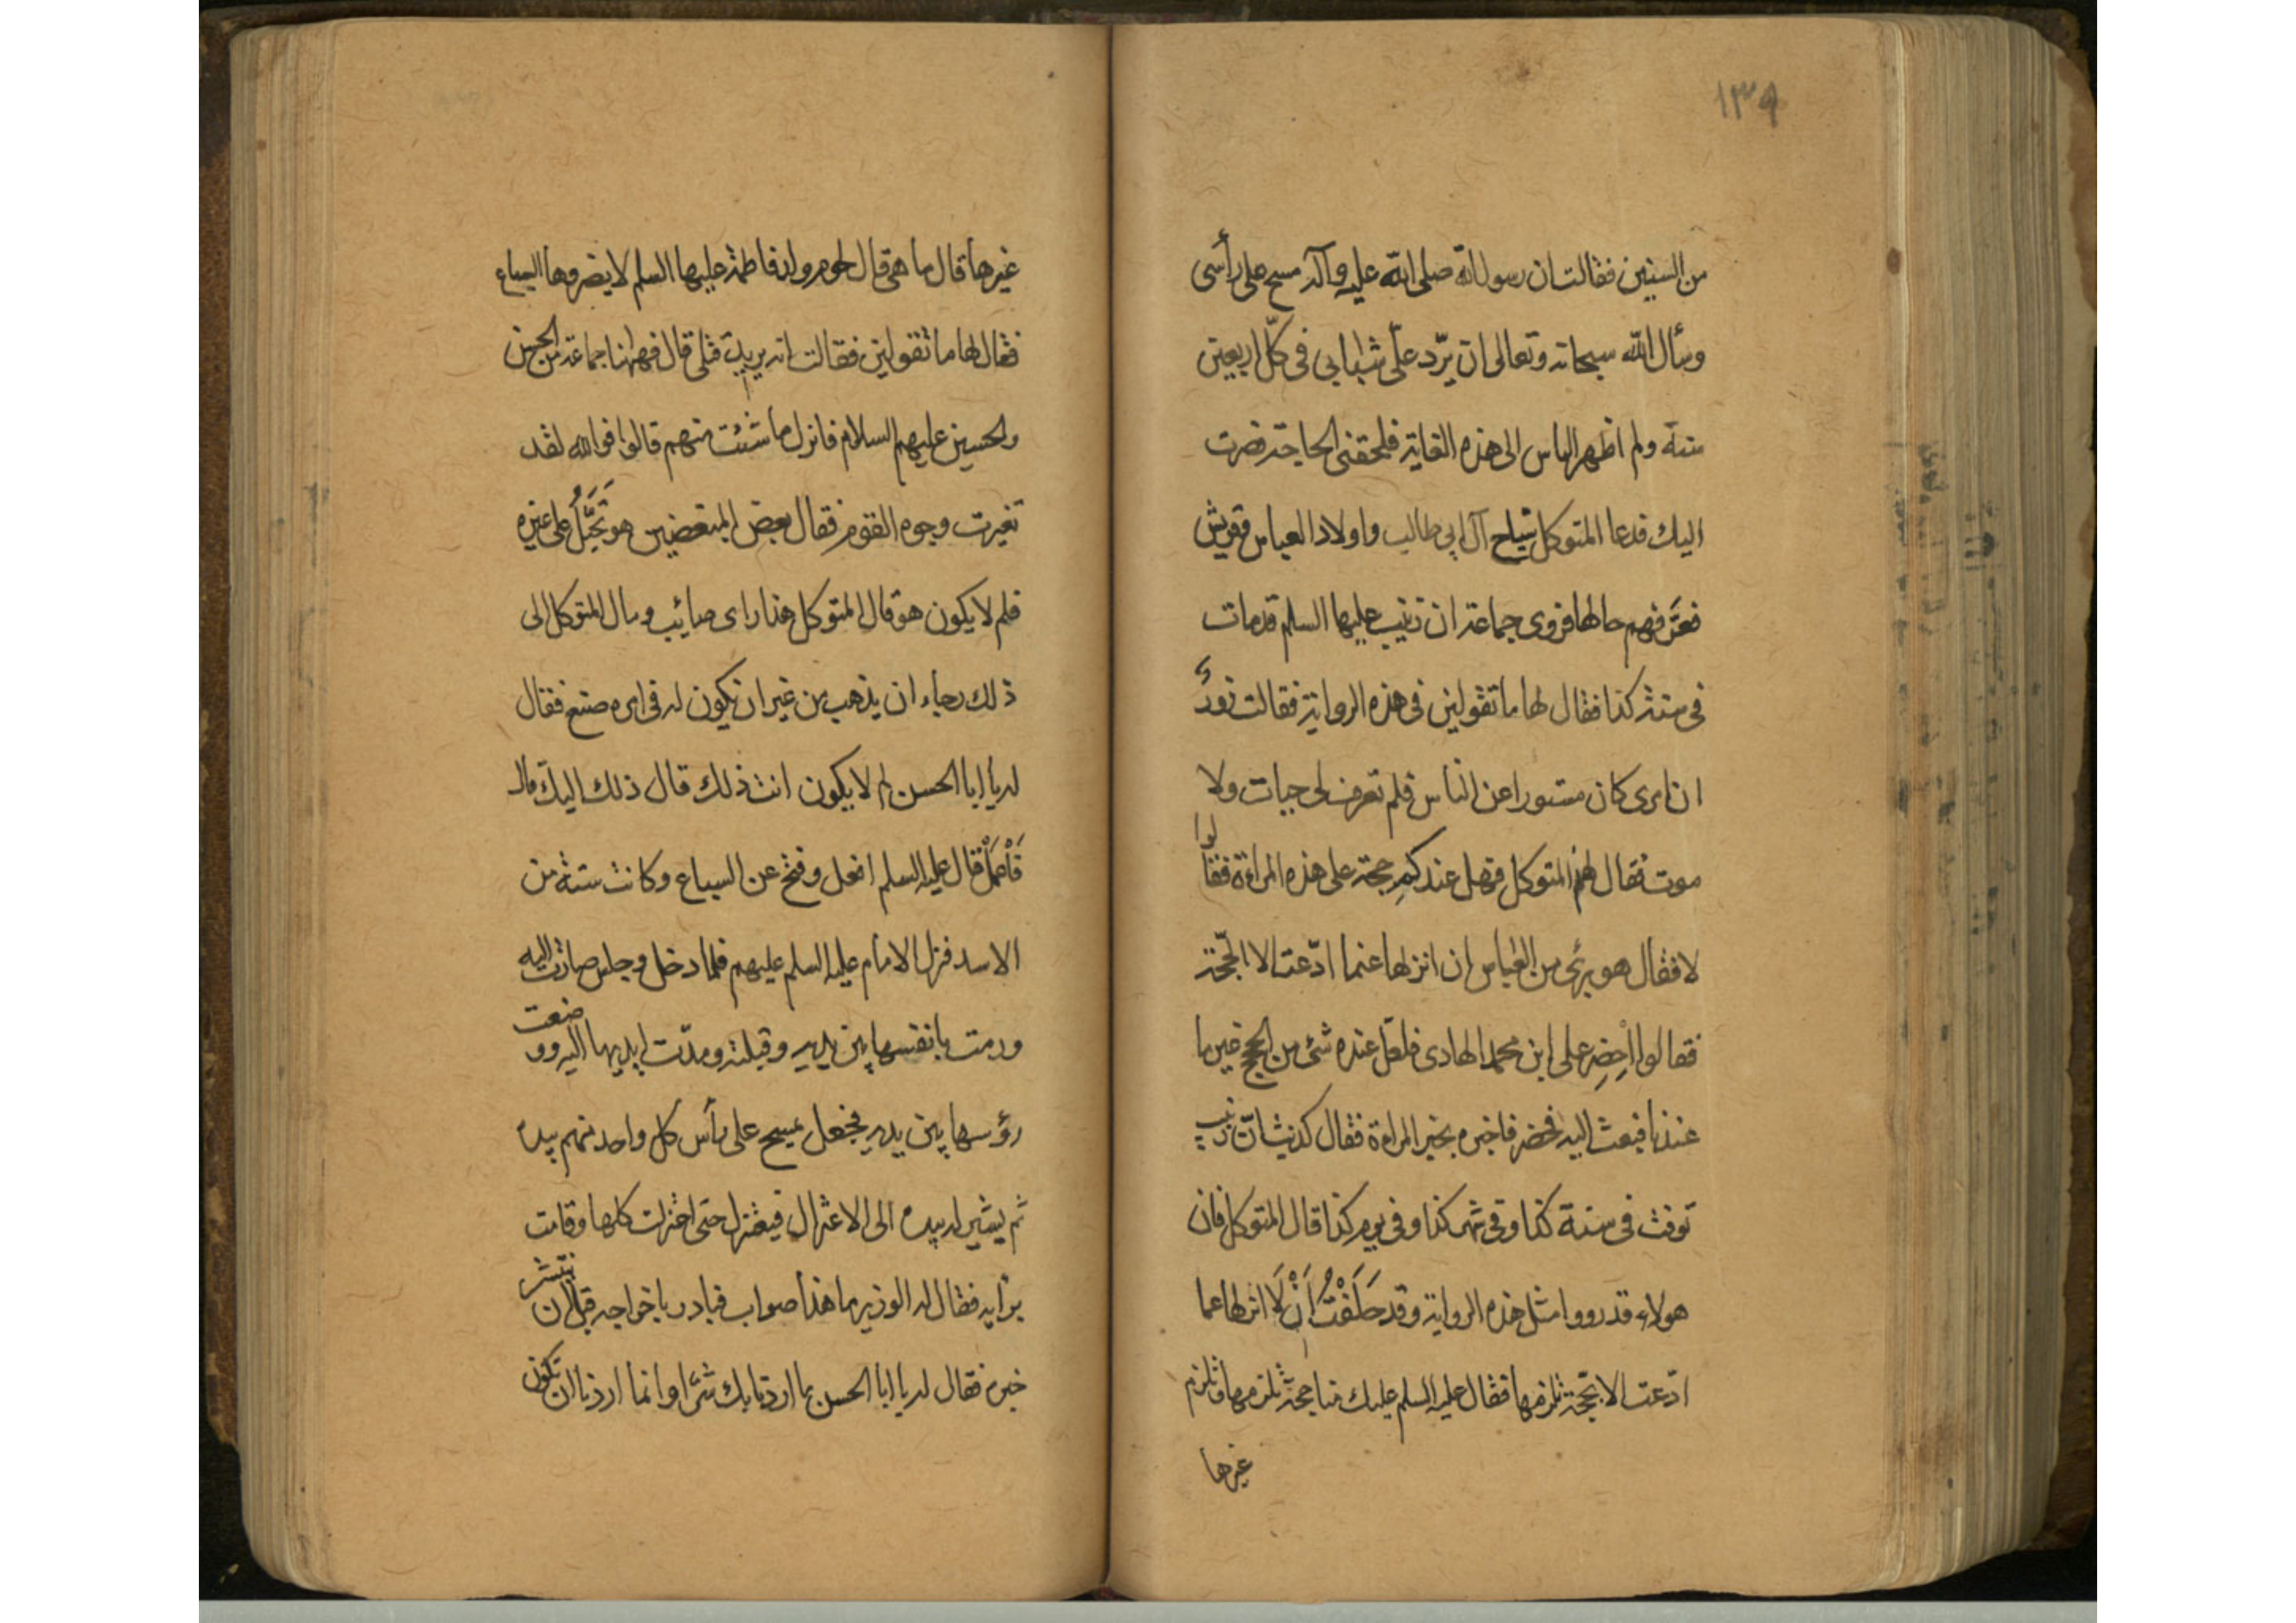 ١٣٩
من السنين فقالت ان رسول الله صلى الله عليه وآله مسح على رأسى
وسأل الله سبحانه وتعالى ان يرّد علّى شبابى فى كلّ اربعين
سنة ولم اظهر الناس الى هذه الغاية فلحقنى الحاجة فصرت
اليك فدعا المتوكل آل ابى طالب واولاد العباس وقريش
فعرّفهم حالها فروى جماعة ان زينب عليها السلم قد ماتت
فى سنة كذا فقال لها ما تقولين فى هذه الرواية فقالت زورٌ
ان امرى كان مستورا عن الناس فلم تعرف لى حيات ولا
موت فقال لهم المتوكل فهل عندكم حجة على هذه المراءة فقالوا
لا فقال هو برئ من العباس ان انزلها عنما ادّعت الا الحجّة
فقالوا اِحضِر على ابن محمد الهادى فلعّل عنده شئ من الحجج غير ما
عندنا فبعث اليه فحضر فاخبره بخبر المراءة فقال كذبت انّ زينب
توفت فى سنة كذا وفى شهر كذا وفى يوم كذا قال المتوكل فان
هولاء قد رووا مثل هذه الرواية وقد حَلَفْتُ اَنْ لَا انزلها عما
ادّعت الا بحّجة تلزمها فقال عليه السلم عليك فنا حجّة تلزمها وتلزم
غيرها
غيرها قال ما هى قال لحوم ولد فاطمة عليها السلم لا يضروها السباع
فقال لها ما تقولين فقالت انه يريد قتلى قال فههنا جماعة من الحسن
والحسين عليهم السلام فانزل ما شئت منهم قالوا فوالله لقد
تغيرت وجوه القوم فقال بعض المبغضين هو تَحَيَّلُ على غيره
فلم لا يكون هو قال المتوكل هذا راى صائب ومال المتوكل الى
ذلك رجاء ان يذهب من غير ان يكون له فى امره صنع فقال
له يا ابا الحسن لم لا يكون انت ذلك قال ذلك اليك قال
فَاْعمَلْ قال عليه السلم افعل وفتح عن السباع وكانت ستة من
الاسد فنزل الامام عليه السلم عليهم فلما دخل وجلس صارت اليه
ورمت بانفسها بين يديه وقبلته ومدّت ايديها اليه ووضعت
رؤسها بين يديه فجعل يمسح على رأس كل واحد منهم بيده
ثم يشير له بيده الى الاعتزال فيعتزل حتى اعتزلت كلها وقامت
بزأيه فقال له الوزير ما هذا صواب فبادر باخراجه قبل ان ينتشر
خبره فقال له يا ابا الحسن ما اردنا بك شئا وانما اردنا ان نكون